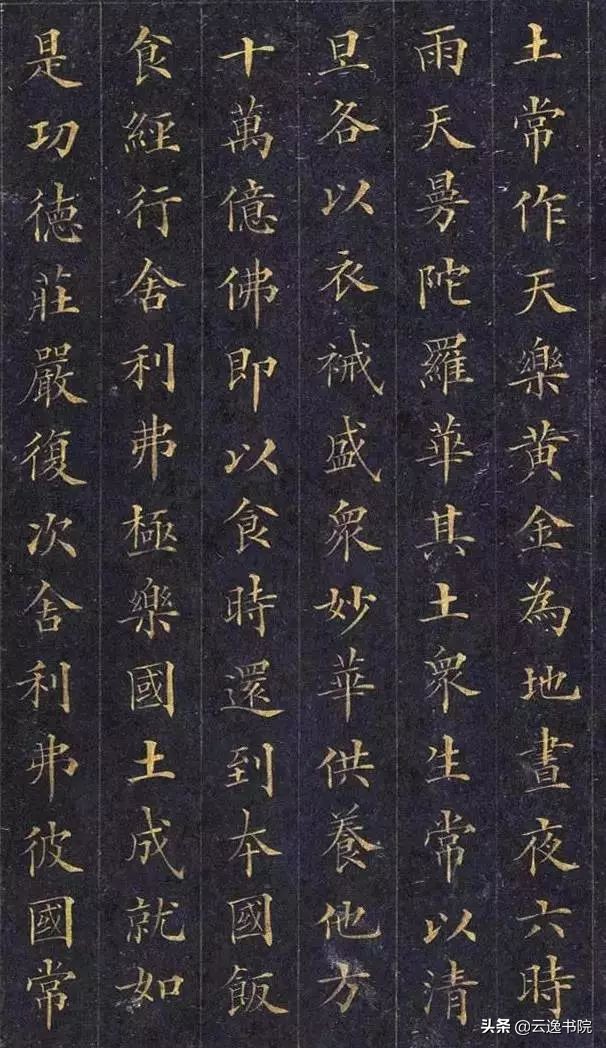 土常作天樂黃金為地晝夜六時
雨天曼陀羅華其土眾生常以清
旦各以衣祴盛眾妙華供養他方
十萬億佛即以食時還到本國飯
食經行舍利弗極樂國土成就如
是功德莊嚴復次舍利弗彼國常
头条 @云逸书院